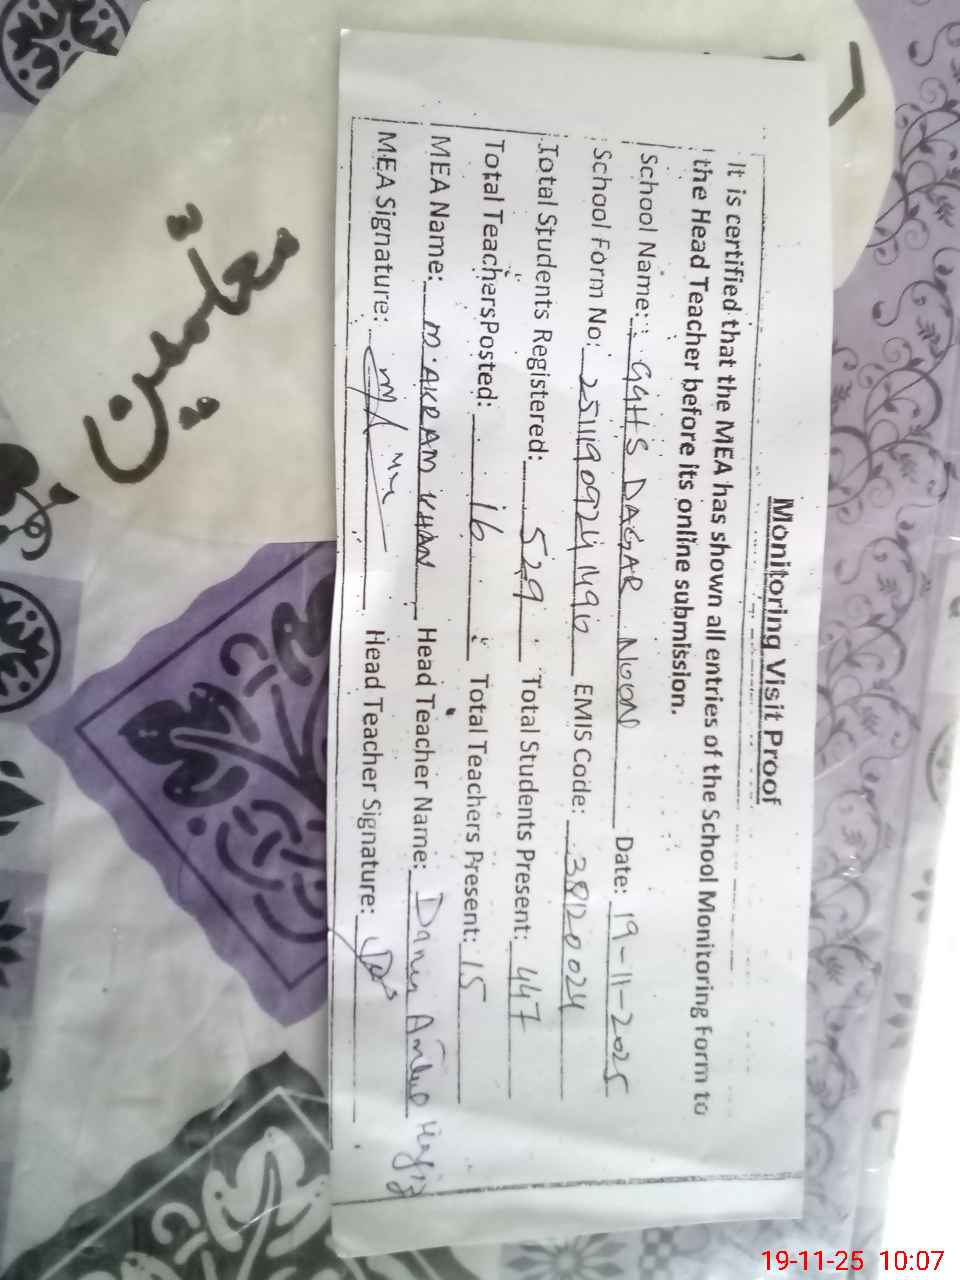 Monitoring Visit Proof
It is certified that the MEA has shown all entries of the School Monitoring Form to
the Head Teacher before its online submission.
School Name: GGHS DAGAR NOON Date: 19-11-2025
School Form No: 2511909241496 EMIS Code: 38120024
Total Students Registered: 529 Total Students Present: 447
Total TeachersPosted: 16 Total Teachers Present: 15
MEA Name: M. AKRAM KHAN Head Teacher Name:
MEA Signature: Head Teacher Signature:
معلمین
19-11-25 10:07